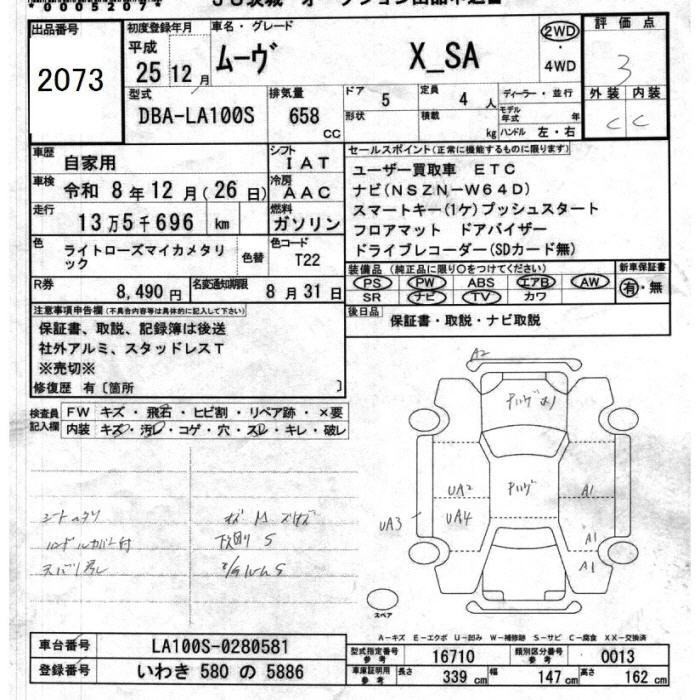 出品番号
2073
初度登録年月
平成
25 12月
車名・グレード
ムーヴ X_SA
2WD
・
4WD
評価点
3
外装 内装
C C
型式
DBA-LA100S
排気量
658
CC
ドア
5
形状
定員
4人
積載
kg
ディーラー・並行
モデル年式 年
ハンドル 左・右
車歴
自家用
シフト
IAT
車検
令和 8年12月(26日)
冷房
AAC
走行
13万5千696 km
燃料
ガソリン
色
ライトローズマイカメタリック
色替
色コード
T22
R券
8,490円
名変通知期限
8月31日
セールスポイント(正常に機能するものに限ります)
ユーザー買取車 ETC
ナビ(NSZN-W64D)
スマートキー(1ケ)プッシュスタート
フロアマット ドアバイザー
ドライブレコーダー(SDカード無)
装備品(純正品に限り○をつけてください)
新車保証書
PS PW ABS エアB AW
SR ナビ TV カワ
有・無
後日品
保証書・取説・ナビ取説
注意事項申告欄(不具合内容等は具体的に記入して下さい)
保証書、取説、記録簿は後送
社外アルミ、スタッドレスT
※売切※
修復歴 有〔箇所 〕
検査員
記入欄
FW キズ・飛石・ヒビ割・リペア跡・×要
内装 キズ・汚レ・コゲ・穴・スレ・キレ・破レ
A2
UA2
A1
UA3
UA4
A1
A1
下廻りS
スペア
A-キズ E-エクボ U-凹み W-補修跡 S-サビ C-腐食 XX-交換済
車台番号
LA100S-0280581
登録番号
いわき 580 の 5886
型式指定番号
参考
16710
類別区分番号
参考
0013
車庫証明用
参考
長さ 339 cm
幅 147 cm
高さ 162 cm